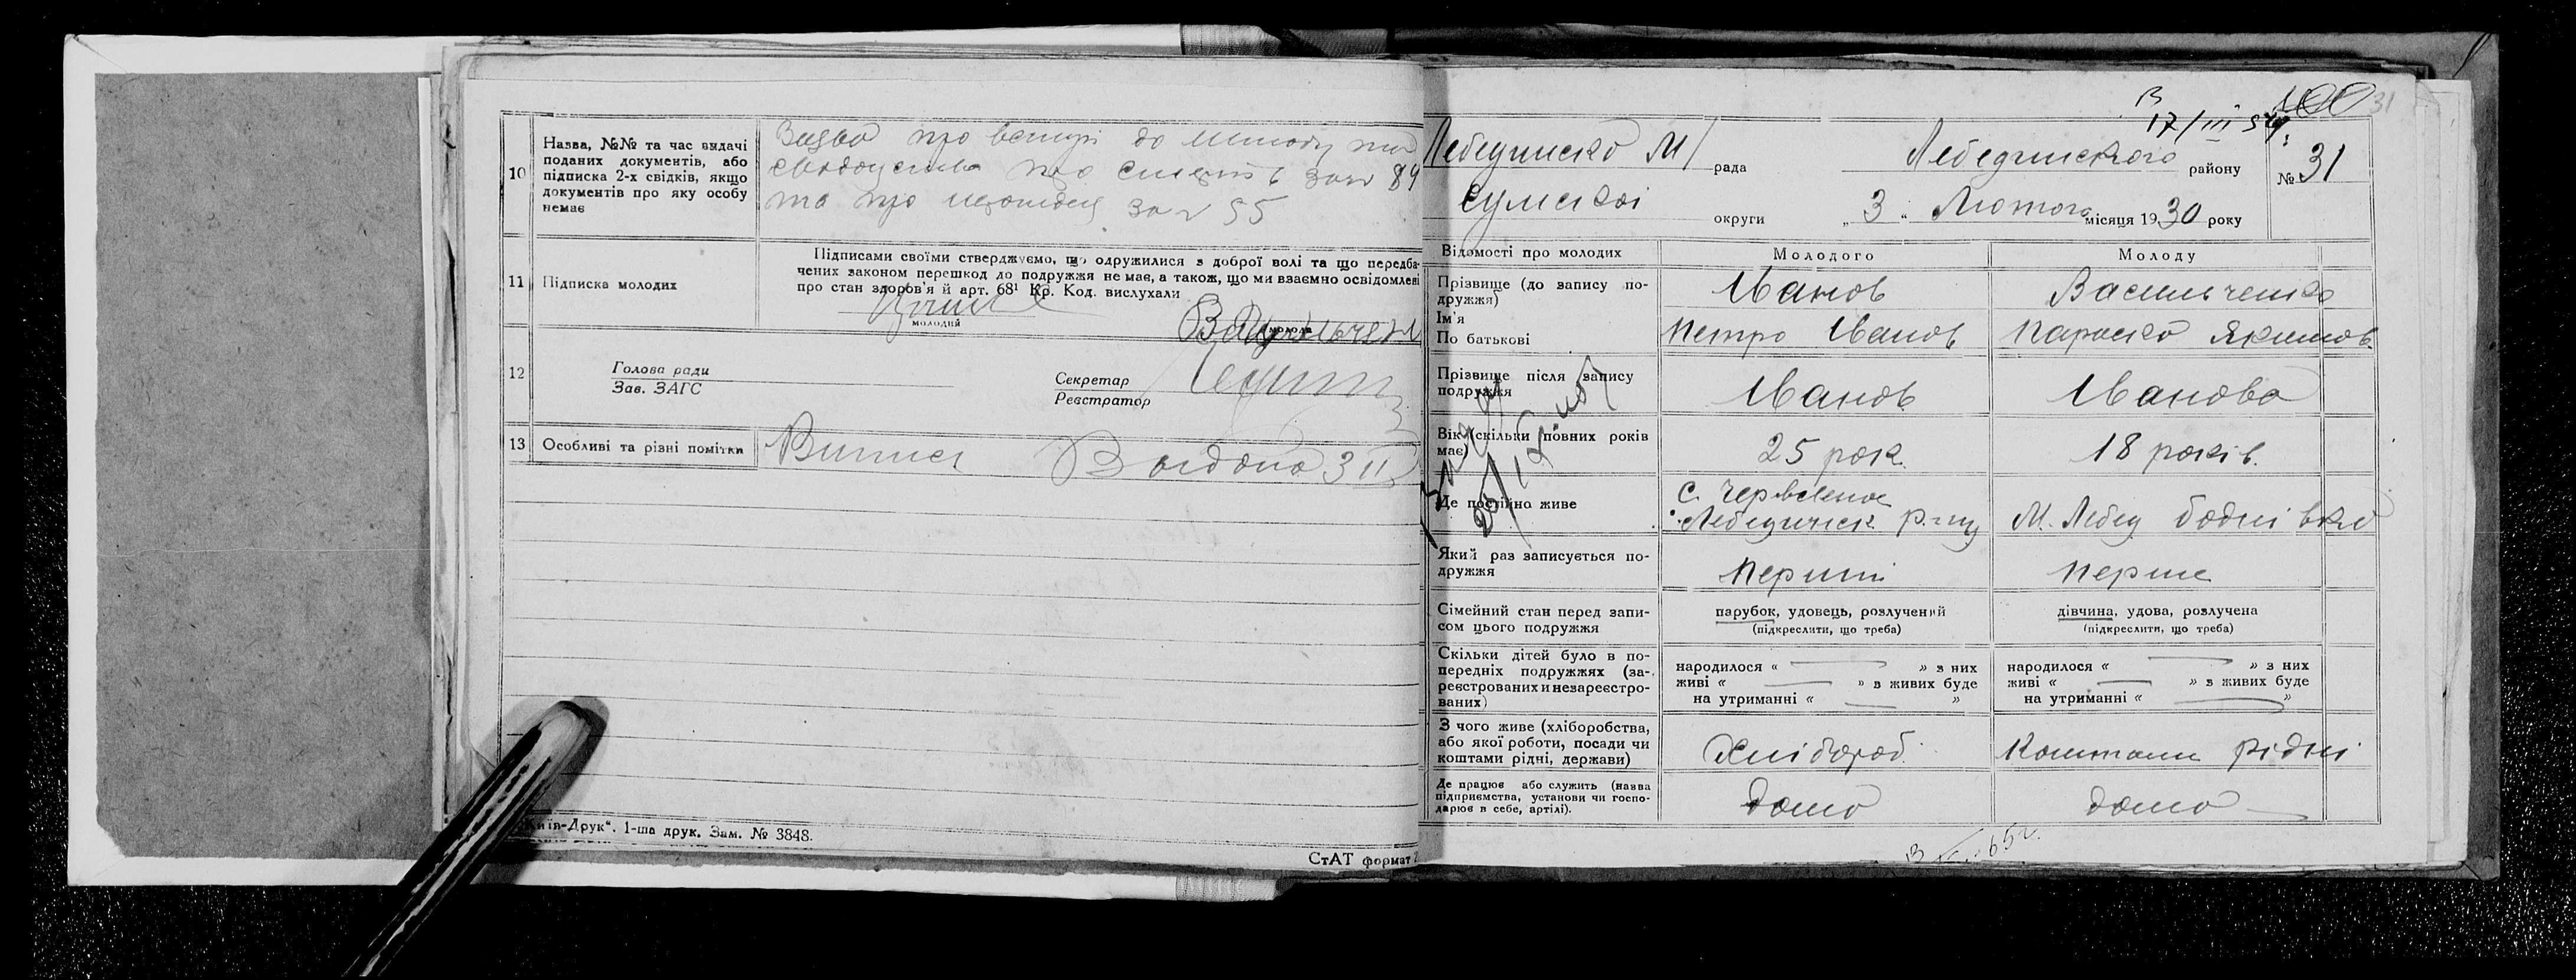 10
Назва, №№ та час видачі
поданих документів, або
підписка 2-х свідків, якщо
документів про яку особу
немає
про вступ до шлюбу та
про смерть за № 84
та про за № 55
11
Підписка молодих
Підписами своїми стверджуємо, що одружилися з доброї волі та що передба-
чених законом перешкод до подружжя не має, а також, що ми взаємно освідомлені
про стан здоров'я й арт. 68¹ Кр. Код. вислухали
молодий
молода
12
Голова ради
Зав. ЗАГС
Секретар
Реєстратор
13
Особливі та різні помітки
Випись Видана 3 II
"Київ-Друк". 1-ша друк. Зам. № 3848.
СтАТ формат
31
В
17/III
Лебединсько М/ рада
Лебединського району
№ 31
Сумської округи
„3“ Лютого місяця 1930 року
Відомості про молодих
Молодого
Молоду
Прізвище (до запису по-
дружжя)
Іванов
Васильченко
Ім'я
По батькові
Петро Іванов
Параска Якимов.
Прізвище після запису
подружжя
Іванов
Іванова
Вік (скільки повних років
має)
25 рок.
18 років.
Де постійно живе
с. Червлене
Лебединск. р-ну
М. Лебед
Який раз записується по-
дружжя
Перший
Перше
Сімейний стан перед запи-
сом цього подружжя
парубок, удовець, розлучений
(підкреслити, що треба)
дівчина, удова, розлучена
(підкреслити, що треба)
Скільки дітей було в по-
передніх подружжях (за-
реєстрованих и незареєстро-
ваних)
народилося « » з них
живі « » з живих буде
на утриманні « »
народилося « » з них
живі « » з живих буде
на утриманні « »
З чого живе (хліборобства,
або якої роботи, посади чи
коштами рідні, держави)
Хлібороб.
Коштами рідні
Де працює або служить (назва
підприємства, установи чи госпо-
дарює в себе, артілі).
дома
дома